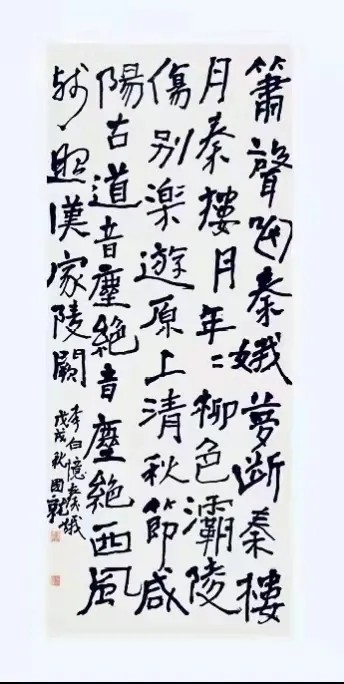 簫聲咽秦娥夢斷秦樓
月秦樓月年〻柳色灞陵
傷别楽遊原上清秋節咸
陽古道音塵絶音塵絶西風
残照漢家陵闕
李白憶秦娥
戊戌秋国